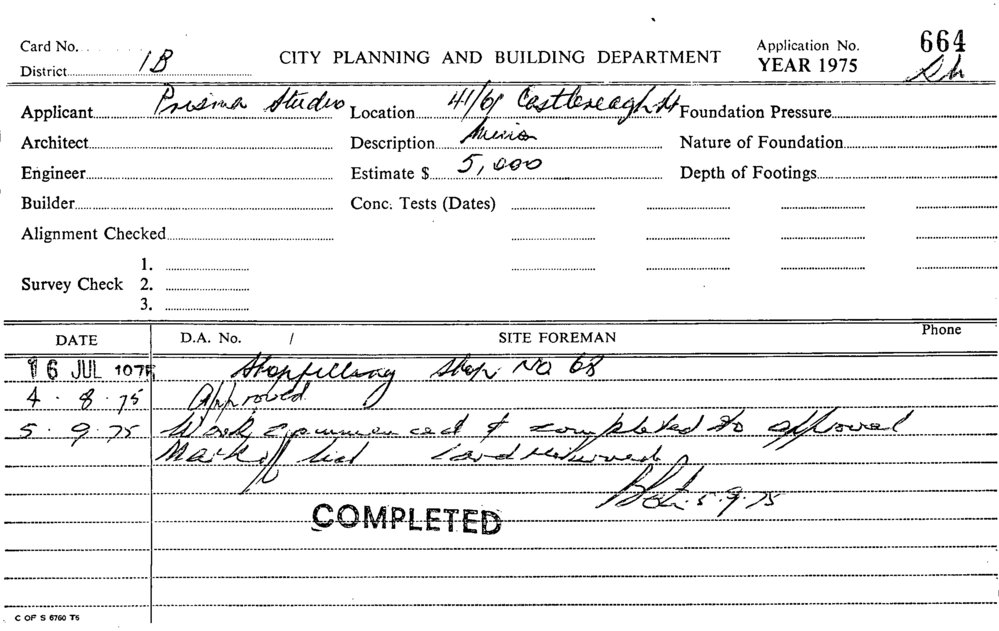 Card No.
District 1B
CITY PLANNING AND BUILDING DEPARTMENT
Application No. 664
YEAR 1975
Applicant Prisma Studio Location 41/61 Castlereagh St Foundation Pressure
Architect Description Minor Nature of Foundation
Engineer Estimate $ 5,000 Depth of Footings
Builder Conc. Tests (Dates)
Alignment Checked
1.
Survey Check 2.
3.
DATE D.A. No. / SITE FOREMAN Phone
16 JUL 1975 Shopfitting Shop No 68
4.8.75 Approved
5.9.75 Work commenced & completed to approval
Mark off list Card returned
5.9.75
COMPLETED
C OF S 6760 T5